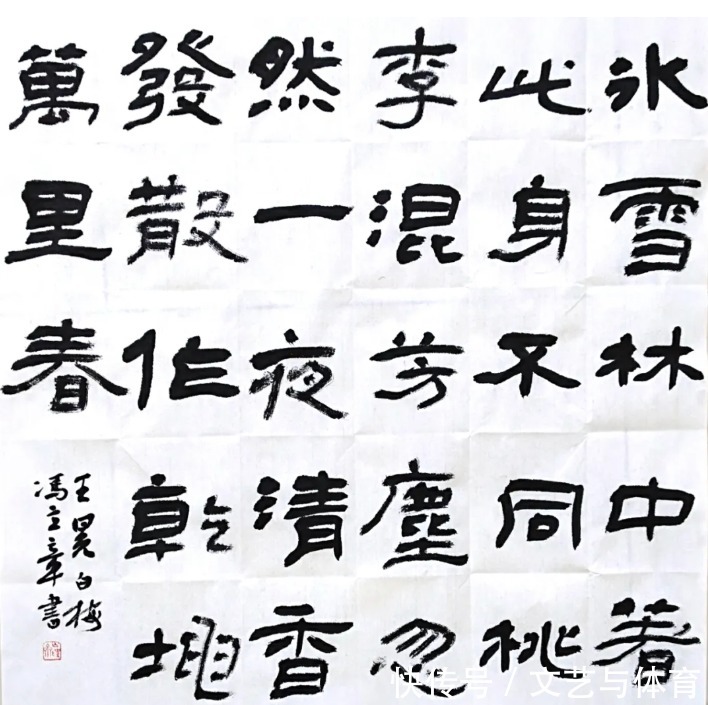 冰雪林中著
此身不同桃
李混芳塵忽
然一夜清香
發散作乾坤
萬里春
王冕白梅
馮立章書
快传号 / 文艺与体育